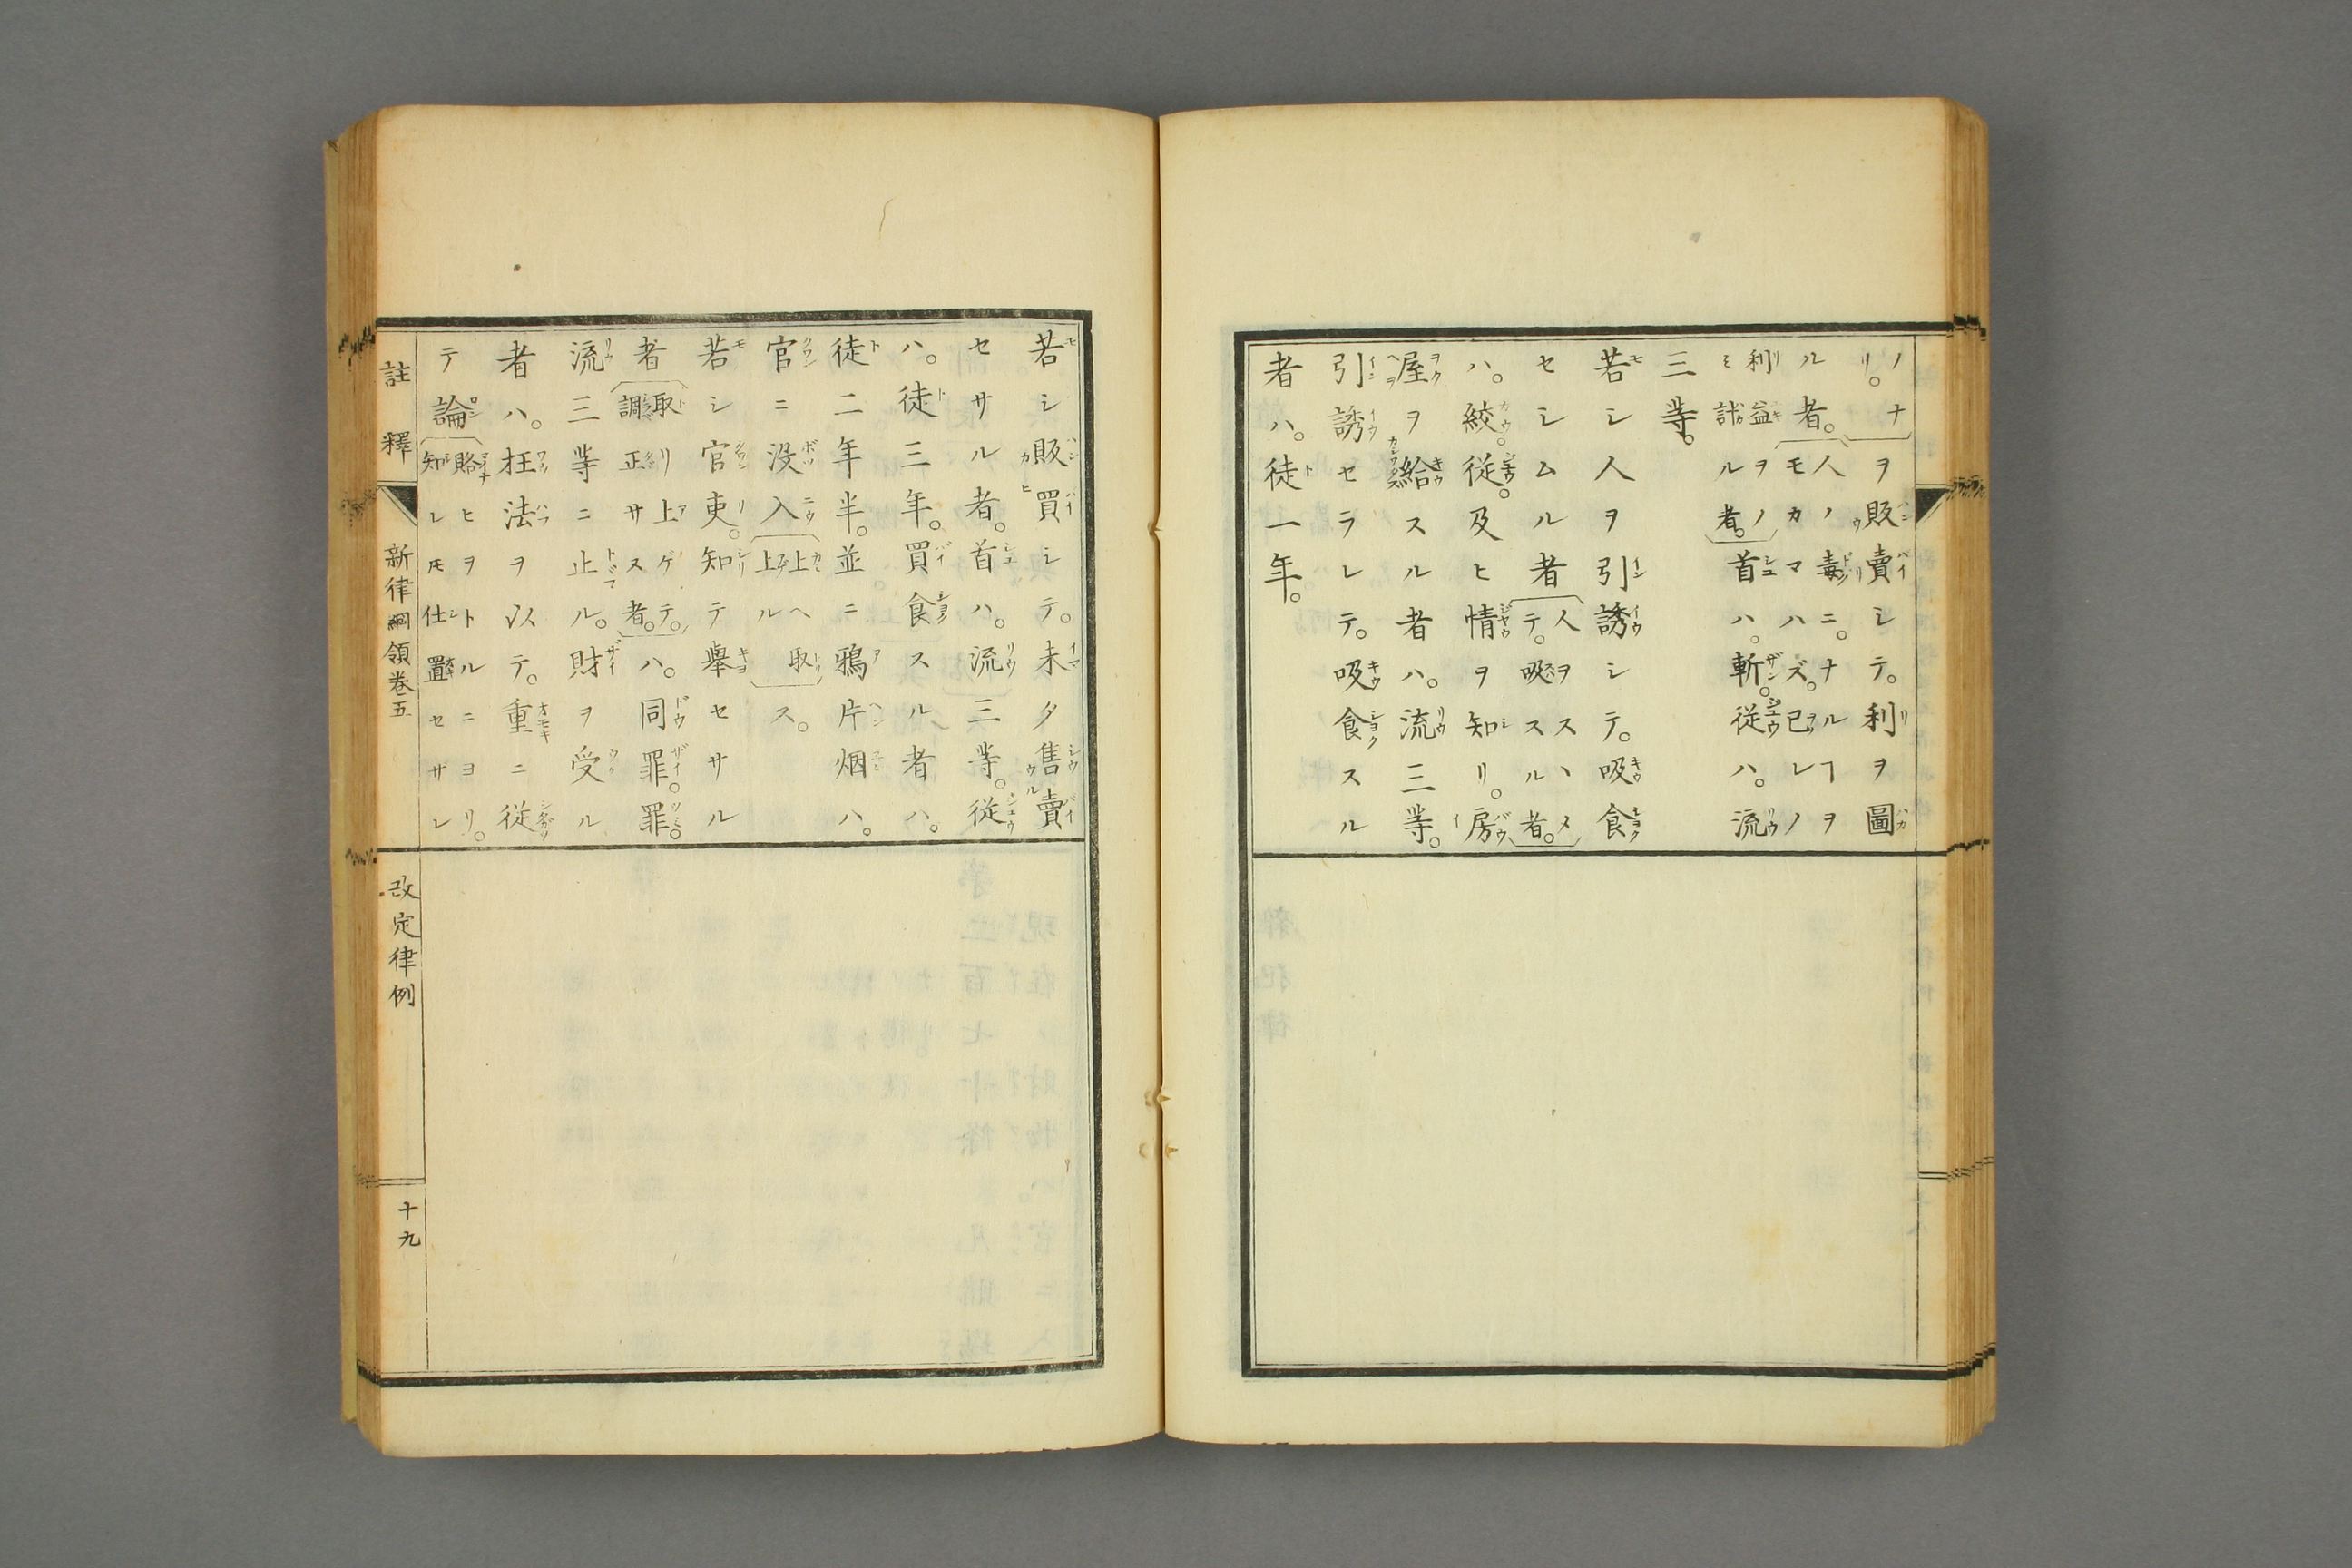 リ。ナヲ販賣シテ。利ヲ圖
ル者。人ノ毒ニ。ナルヿヲモカマハズ。已レノ
利益ヲノミ謀ル者。首ハ。斬。従ハ。流
三等。
若シ人ヲ引誘シテ。吸食
セシムル者人ヲスヽメテ。吸スル者。
ハ。絞。従。及ヒ情ヲ知リ。房
屋ヲ給スル者ハ。流三等。
引誘セラレテ。吸食スル
者ハ。徒一年。
若シ販買シテ。未タ售賣
セサル者。首ハ。流三等。従
ハ。徒三年。買食スル者ハ。
徒二年半。並ニ鴉片烟ハ。
官ニ没入上ヘ取上ルス。
若シ官吏。知テ舉セサル
者取リ上ゲテ。調糾正サス者。ハ。同罪。罪。
流三等ニ止ル。財ヲ受ル
者ハ。枉法ヲ以テ。重ニ従
テ論賂ヒヲトルニヨリ。知レ𪜈仕置セザレ
註釋 新律綱領卷五 改定律例 十九